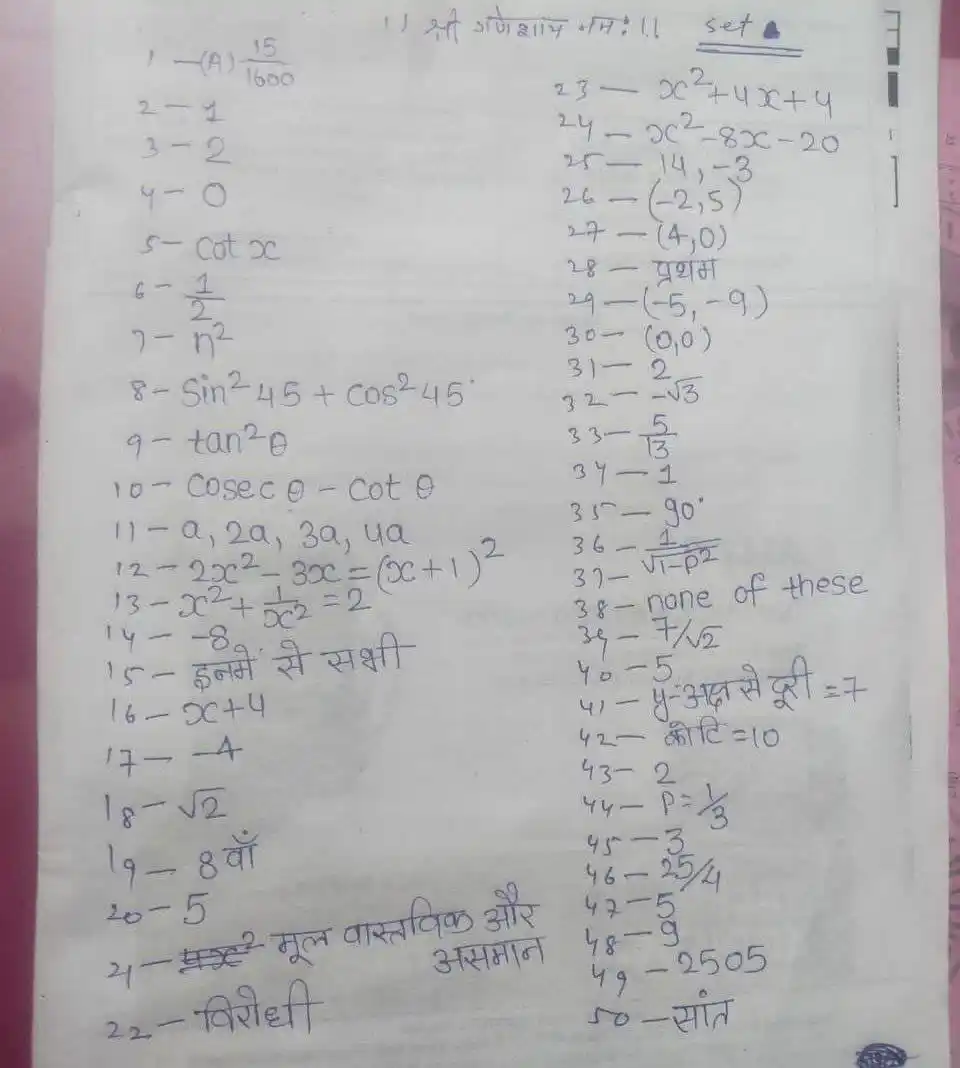 ।। श्री गणेशाय नमः ।। set
1 — (A) 15/1600
2 — 1
3 — 2
4 — 0
5 — cot x
6 — 1/2
7 — n²
8 — Sin² 45 + cos² 45°
9 — tan² θ
10 — Cosec θ - cot θ
11 — a, 2a, 3a, 4a
12 — 2x² - 3x = (x+1)²
13 — x² + 1/x² = 2
14 — -8
15 — इनमें से सभी
16 — x+4
17 — -4
18 — √2
19 — 8 वाँ
20 — 5
21 — मूल वास्तविक और
असमान
22 — विरोधी
23 — x²+4x+4
24 — x²-8x-20
25 — 14, -3
26 — (-2,5)
27 — (4,0)
28 — प्रथम
29 — (-5, -9)
30 — (0,0)
31 — 2
32 — -√3
33 — 5/13
34 — 1
35 — 90°
36 — 1/√1-P²
37 —
38 — none of these
39 — 7/√2
40 — 5
41 — y-अक्ष से दूरी = 7
42 — कोटि = 10
43 — 2
44 — P = 1/3
45 — 3
46 — 25/4
47 — 5
48 — 9
49 — 2505
50 — सांत